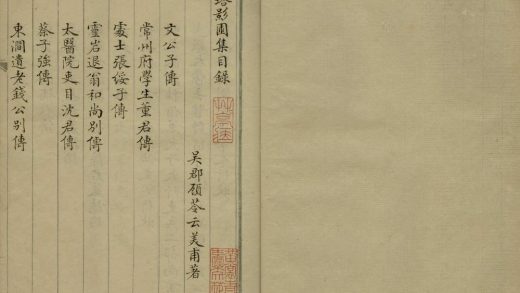 塔影園集目錄
吳郡顧苓云美甫著
文公子傳
常州府學生董君傳
處士張綏子傳
靈岩退翁和尚別傳
太醫院吏目沈君傳
蔡子強傳
東澗遺老錢公別傳